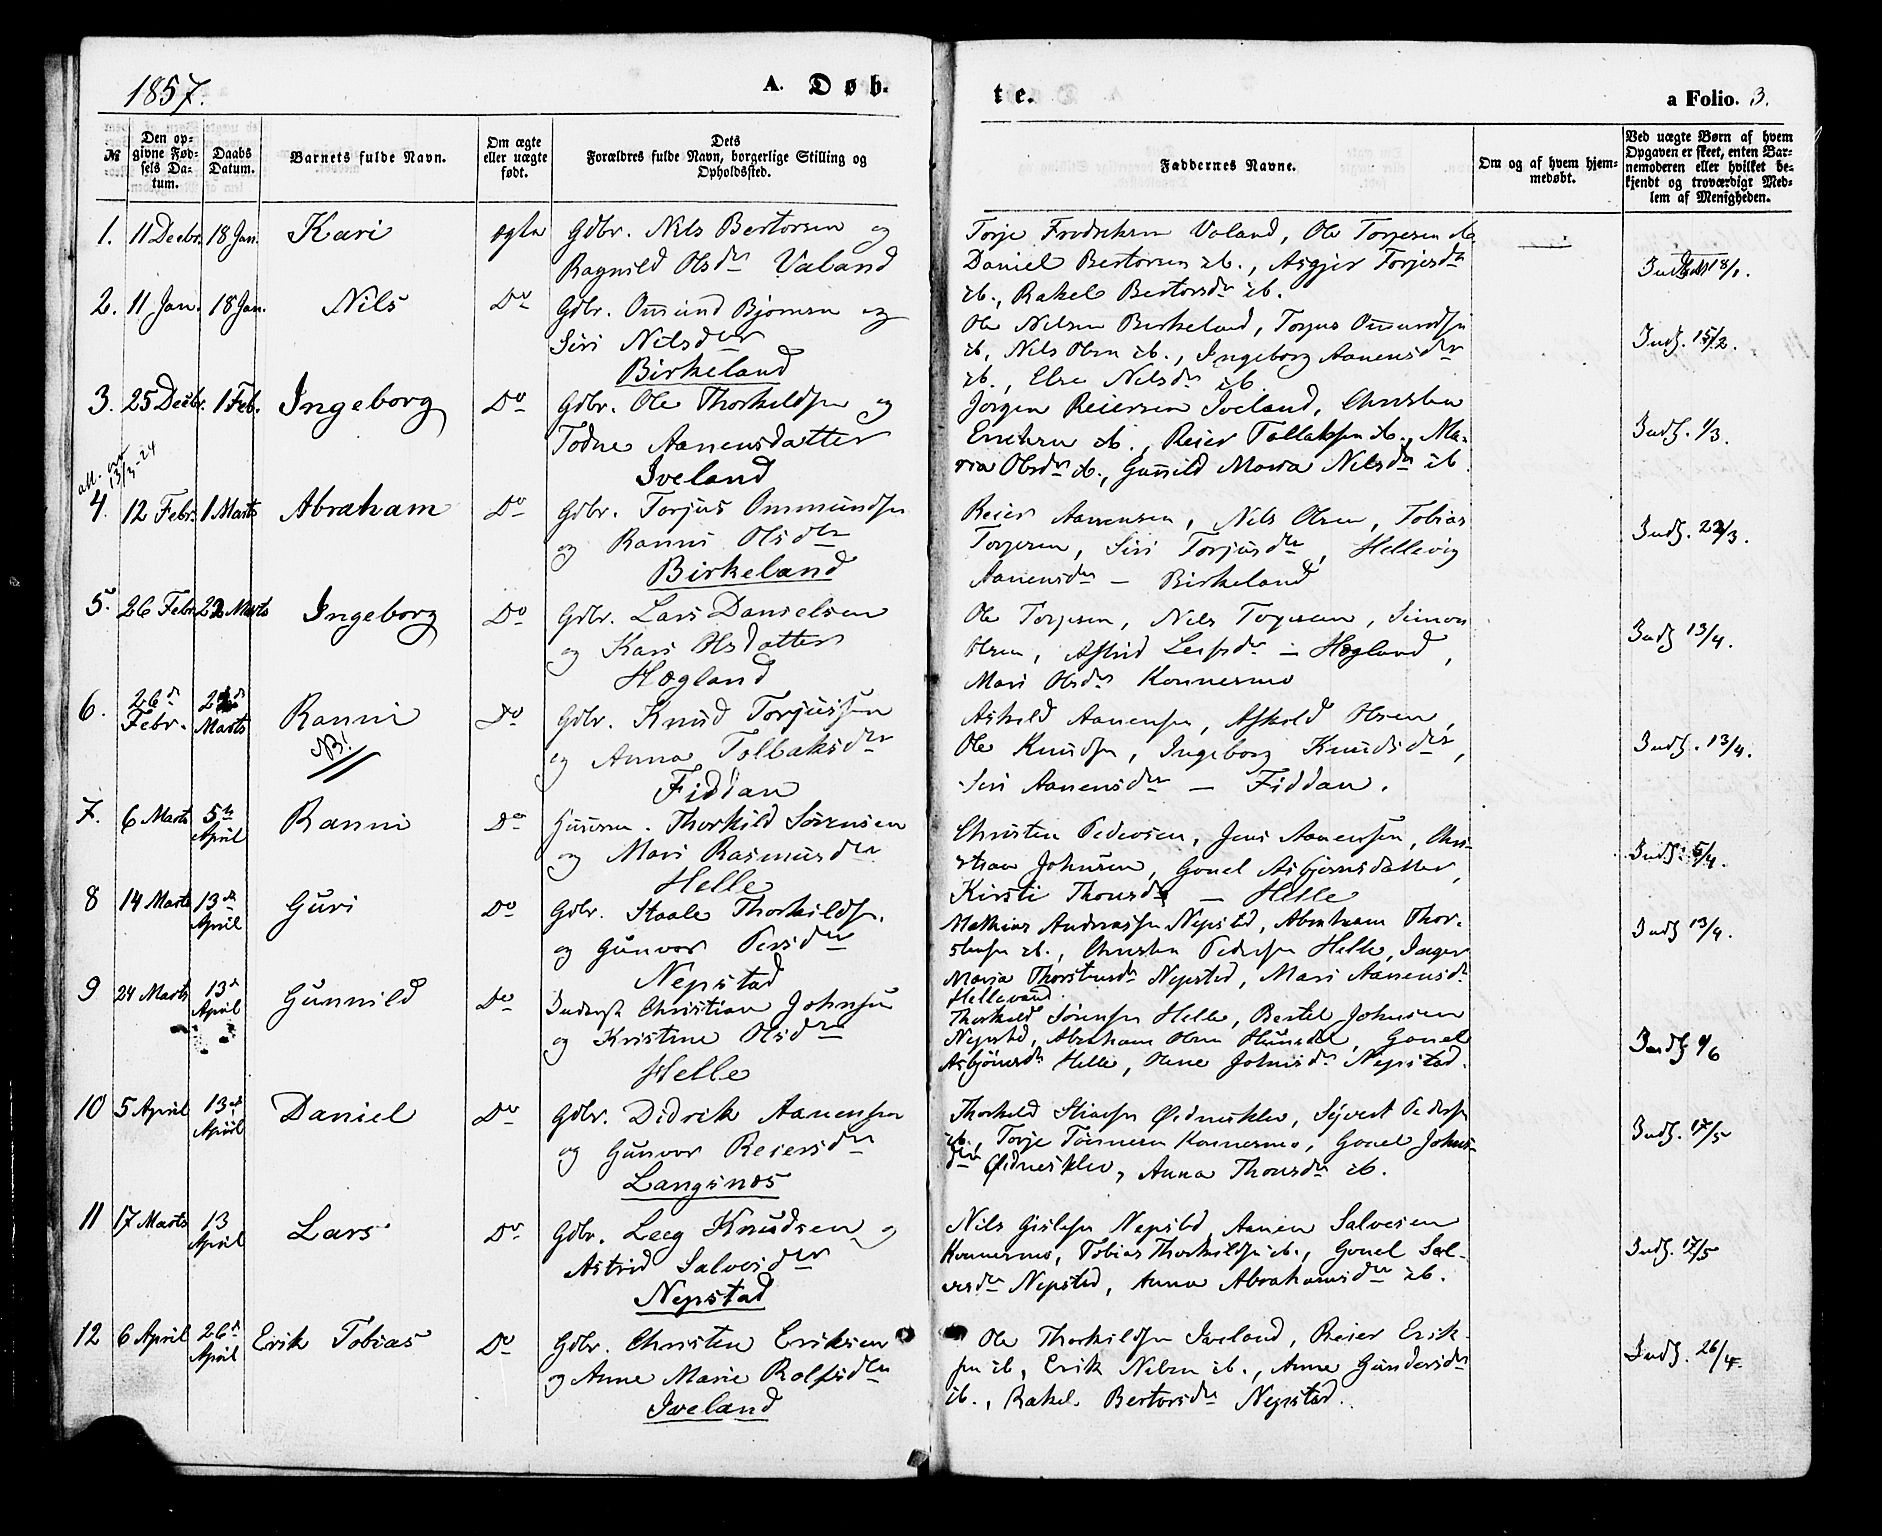 1857.
A. Døb-
te.
a Folio. 3.
№
Den op-
givne Fød-
sels Da-
tum.
Daabs
Datum.
Barnets fulde Navn.
Om ægte
eller uægte
født.
Dets
Forældres fulde Navn, borgerlige Stilling og
Opholdssted.
Faddernes Navne.
Om og af hvem hjem-
medøbt.
Ved uægte Børn af hvem
Opgaven er skeet, enten Bar-
nemoderen eller hvilket be-
kjendt og troværdigt Med-
lem af Menigheden.
1. 11 Decbr. 18 Jan. Kari ægte Gdbr. Nils Bertorsen og
Ragnild Olsdr Valand
Torje Fredriksen Valand, Ole Torjesen ib
Daniel Bertorsen ib., Asgjer Torjesdr
ib., Rakel Bertorsdr ib.
18/1.
2. 11 Jan. 18 Jan. Nils Do Gdbr. Omund Bjornsen og
Siri Nilsdtr
Birkeland
Ole Nilsen Birkeland, Torjus Omundsen
ib, Nils Olsen ib., Ingeborg Aanensdtr
ib., Else Nilsdr ib.
Inds. 15/2.
3. 25 Decbr. 1 Feb. Ingeborg Do Gdbr. Ole Thorkildsen og
Todne Aanensdatter
Iveland
Jørgen Reiersen Iveland, Christen
Ericksen ib., Reier Tallaksen ib., Ma-
ria Olsdr ib., Gunild Maria Nilsdr ib.
Inds. 1/3.
att. av
13/3-24
4. 12 Febr. 1 Marts Abraham Do Gdbr. Torjus Ommundsen
og Ranni Olsdtr
Birkeland
Reier Aanensen, Nils Olsen, Tobias
Torjesen, Siri Torjusdtr, Hellevig
Aanensdr — Birkeland
Inds. 22/3.
5. 26 Febr. 22 Marts Ingeborg Do Gdbr. Lars Danielsen
og Kari Olsdatter
Høgland
Ole Torjesen, Nils Torjesen, Simon
Olsen, Astrid Leifsdr — Høgland,
Mari Olsdr Konnesmo
Inds. 13/4.
6. 26d
Febr. Marts Ranni Do Gdbr. Knud Torjussen
NB!
og Anna Tollaksdtr
Fiddan
Askild Aanensen, Askold Olsen,
Ole Knudsen, Ingeborg Knudsdtr,
Siri Aanensdtr — Fiddan.
Inds. 13/4.
7. 6 Marts 5te
April Ranni Do Thorkild Sørensen
og Mari Rasmusdtr
Helle
Christen Pedersen, Jens Aanensen, Chri-
stian Johnsen, Gonel Asbjørnsdatter,
Kirsti Thorsdr — Helle
Inds. 5/4.
8 14 Marts 13de
April Guri Do Gdbr. Staale Thorkildsen
og Gunvor Persdtr
Nepstad
Mathias Andreassen Nepstad, Abraham Thor-
stensen ib., Christen Pedersen Helle, Inger
Maria Thorstensdr Nepstad, Mari Aanensdr
Hellevand
Inds 13/4.
9 24 Marts 13d
April Gunnild Do Inderst Christian Johnsen
og Kristine Olsdtr
Helle
Thorkild Sørensen Helle, Bertel Johnsen
Nepstad, Abraham Olsen Gonel
Asbjönsdr Helle, Olene Johnsdr Nepstad.
Inds. 1/6
10 5 April 13de
April Daniel Do Gdbr. Didrik Aanensen
og Gunvor Reiersdtr
Langsnæs
Thorkild Øidneskley, Syvert Pedersen
ib., Torje Tønnesen Konnesmo, Gonel Johns-
dtr Øidneskley, Anna Thorsdtr ib.
Inds. 17/5
11 17 Marts 13
April Lars Do Gdbr. Leeg Knudsen og
Astrid Salvesdtr
Nepstad
Nils Gislesen Nepstad, Aanen Salvesen
Konnesmo, Tobias Thorkildsen ib., Gonel Sal-
vesdtr Nepstad, Anna Abrahamsdtr ib.
Inds. 17/5
12 6 April 26d
April Erik Tobias Do Gdbr. Christen Eriksen
og Anne Marie Rolfsdtr
Iveland
Ole Thorkildsen Iveland, Reier Erik-
sen ib, Erik Nilsen ib., Anne Gundersdtr
ib., Rakel Bertorsdtr Nepstad.
Inds. 26/4.